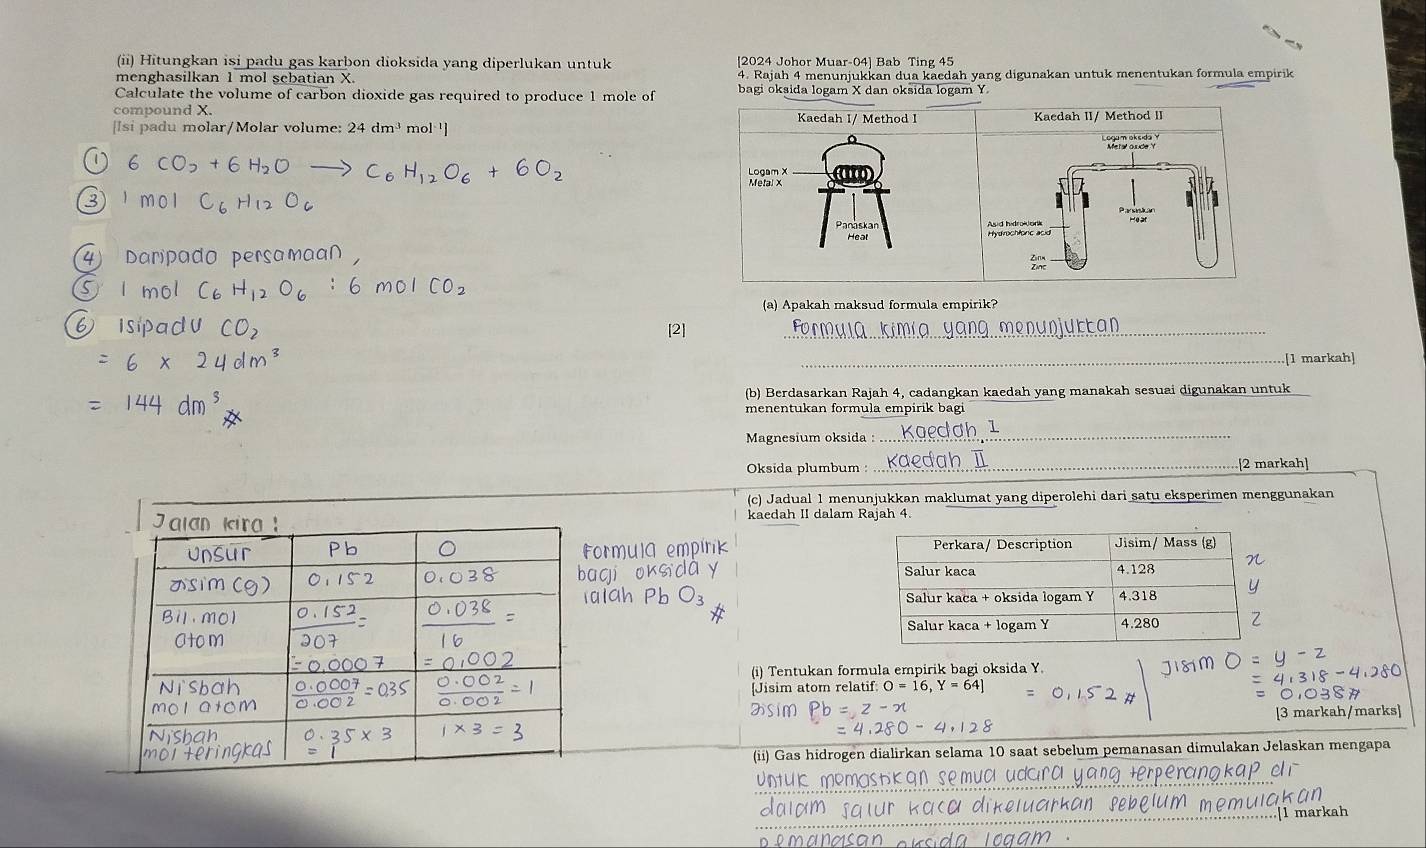 (ii) Hitungkan isi padu gas karbon dioksida yang diperlukan untuk
menghasilkan 1 mol sebatian X.
Calculate the volume of carbon dioxide gas required to produce 1 mole of
compound X.
[Isi padu molar/Molar volume: 24 dm³ mol⁻¹]
① 6 CO₂ + 6 H₂O → C₆ H₁₂ O₆ + 6 O₂
③ 1 mol C₆ H₁₂ O₆
④ Daripada persamaan,
⑤ 1 mol C₆ H₁₂ O₆ : 6 mol CO₂
⑥ Isipadu CO₂
[2]
= 6 x 24 dm³
= 144 dm³ #
[2024 Johor Muar-04] Bab Ting 45
4. Rajah 4 menunjukkan dua kaedah yang digunakan untuk menentukan formula empirik
bagi oksida logam X dan oksida logam Y.
Kaedah I/ Method I
Kaedah II/ Method II
Logam X
Metal X
Panaskan
Heat
Logam oksida Y
Metal oxide Y
Panaskan
Heat
Asid hidroklorik
Hydrochloric acid
Zink
Zinc
(a) Apakah maksud formula empirik?
Formula kimia yang menunjukkan
[1 markah]
(b) Berdasarkan Rajah 4, cadangkan kaedah yang manakah sesuai digunakan untuk
menentukan formula empirik bagi
Magnesium oksida : Kaedah I
Oksida plumbum : Kaedah II [2 markah]
(c) Jadual 1 menunjukkan maklumat yang diperolehi dari satu eksperimen menggunakan
kaedah II dalam Rajah 4.
Perkara/ Description Jisim/ Mass (g)
Salur kaca 4.128 x
Salur kaca + oksida logam Y 4.318 y
Salur kaca + logam Y 4.280 z
(i) Tentukan formula empirik bagi oksida Y.
[Jisim atom relatif: O = 16, Y = 64]
Jisim Pb = z - x
= 4.280 - 4.128
= 0.152 #
Jisim O = y - z
= 4.318 - 4.280
= 0.038 #
[3 markah/marks]
Jalan kira :
Unsur Pb O
Jisim (g) 0.152 0.038
Bil. mol atom 0.152/207 = 0.038/16 =
= 0.0007 = 0.002
Nisbah mol atom 0.0007/0.002 = 0.35 0.002/0.002 = 1
Nisbah mol teringkas 0.35 x 3 = 1 1 x 3 = 3
Formula empirik
bagi oksida Y
ialah Pb O₃ #
(ii) Gas hidrogen dialirkan selama 10 saat sebelum pemanasan dimulakan Jelaskan mengapa
Untuk memastikan semua udara yang terperangkap di
dalam salur kaca dikeluarkan sebelum memulakan
[1 markah
pemanasan oksida logam.